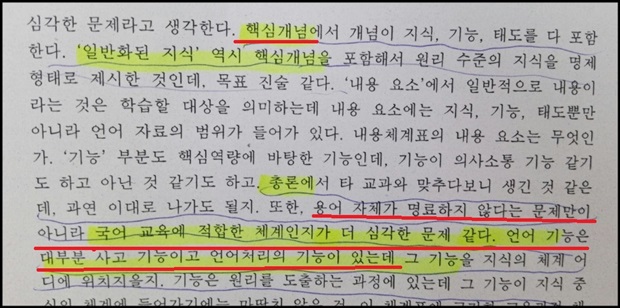 심각한 문제라고 생각한다. 핵심개념에서 개념이 지식, 기능, 태도를 다 포함
한다. '일반화된 지식' 역시 핵심개념을 포함해서 원리 수준의 지식을 명제
형태로 제시한 것인데, 목표 진술 같다. '내용 요소'에서 일반적으로 내용이
라는 것은 학습할 대상을 의미하는데 내용 요소에는 지식, 기능, 태도뿐만
아니라 언어 자료의 범위가 들어가 있다. 내용체계표의 내용 요소는 무엇인
가. '기능' 부분도 핵심역량에 바탕한 기능인데, 기능이 의사소통 기능 같기
도 하고 아닌 것 같기도 하고, 총론에서 타 교과와 맞추다보니 생긴 것 같은
데, 과연 이대로 나가도 될지. 또한, 용어 자체가 명료하지 않다는 문제만이
아니라 국어 교육에 적합한 체계인지가 더 심각한 문제 같다. 언어 기능은
대부분 사고 기능이고 언어처리의 기능이 있는데 그 기능을 지식의 체계 어
디에 위치지을지. 기능은 원리를 도출하는 과정에 있는데 그 기능이 지식 중